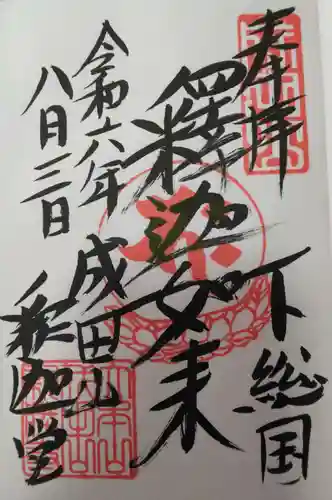 奉拝
下総国
釋迦如来
令和六年
八月三日
成田山
釈迦堂